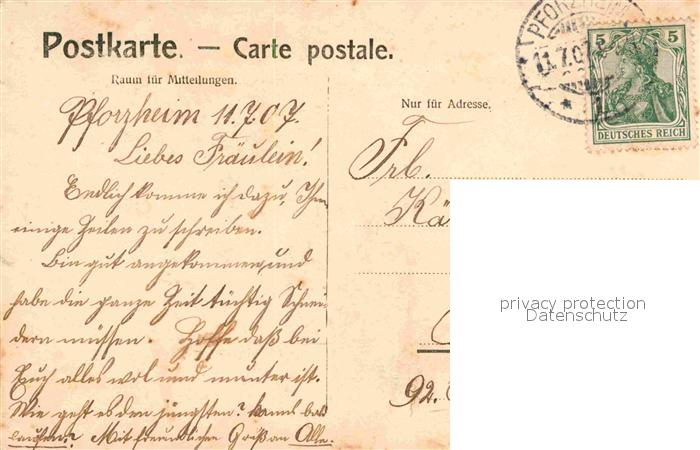 Postkarte. — Carte postale.
Raum für Mitteilungen.
Nur für Adresse.
PFORZHEIM
11.7.07
5 5
DEUTSCHES REICH
Pforzheim 11.7.07.
Liebes Fräulein!
Endlich komme ich dazu, Ihnen
einige Zeilen zu schreiben.
Bin gut angekommen, und
habe die ganze Zeit tüchtig Schnei-
dern müssen. Hoffe daß bei
Euch alles wol und munter ist.
Wie geht es den jüngsten? kann
laufen? Mit freundlichen Gruß an Alle.
Frl.
Kä
92.
privacy protection
Datenschutz